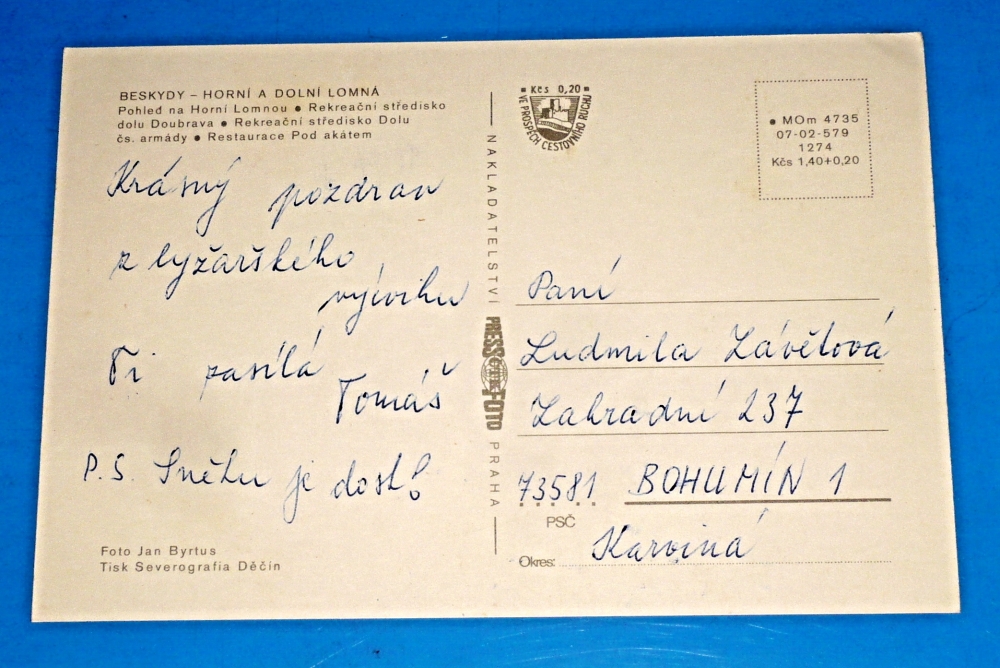 BESKYDY – HORNÍ A DOLNÍ LOMNÁ
Pohled na Horní Lomnou ● Rekreační středisko
dolu Doubrava ● Rekreační středisko Dolu
čs. armády ● Restaurace Pod akátem
Krásný pozdrav
z lyžařského
výcviku
Ti zasílá
Tomáš
P.S. Sněhu je dost!
Foto Jan Byrtus
Tisk Severografia Děčín
NAKLADATELSTVÍ PRESSFOTO PRAHA
Kčs 0,20
VE PROSPĚCH CESTOVNÍHO RUCHU
● MOm 4735
07-02-579
1274
Kčs 1,40+0,20
Paní
Ludmila Závětová
Zahradní 237
73581 BOHUMÍN 1
PSČ
Karviná
Okres: